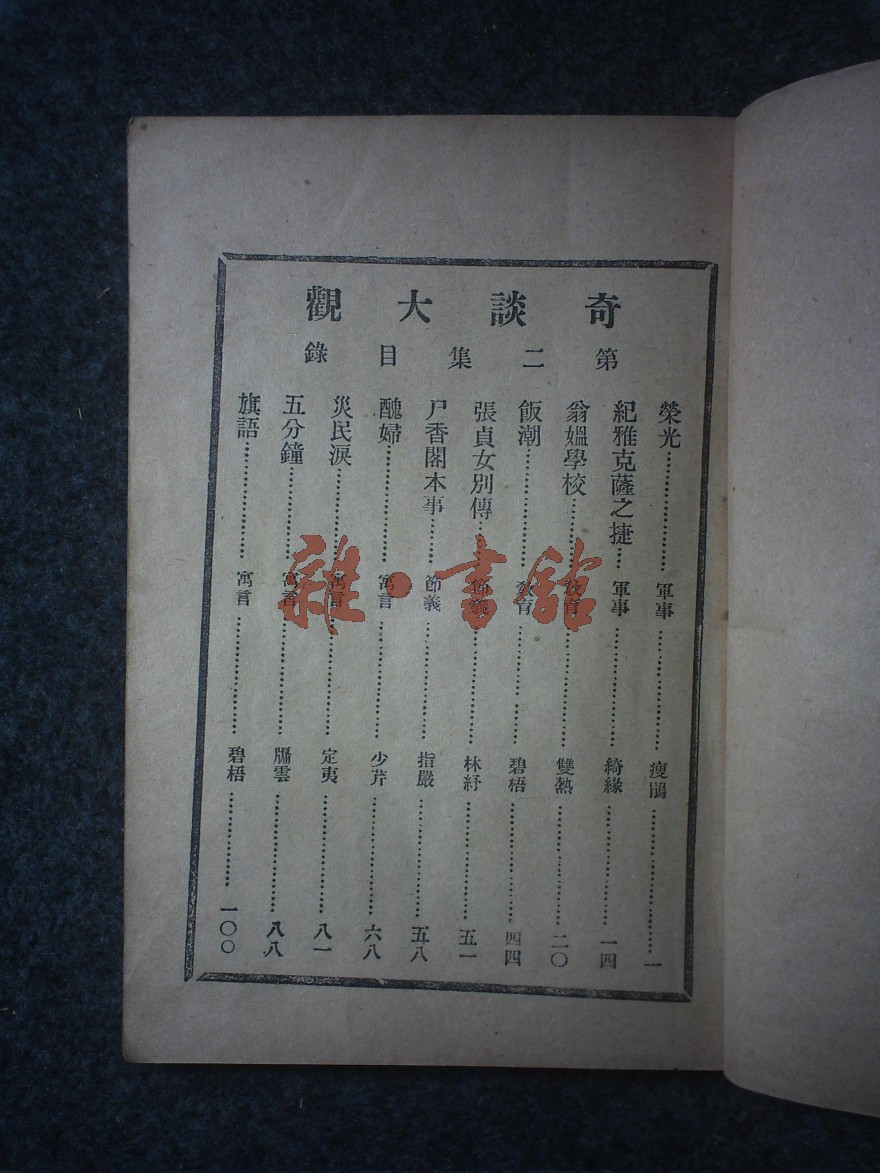 奇談大觀
第二集目錄
榮光……軍事……瘦鵑……一
紀雅克薩之捷…軍事……綺緣……一四
翁媼學校……教育……雙熱……二〇
飯潮……教育……碧梧……四四
張貞女別傳……節義……林紓……五一
尸香閣本事……節義……指嚴……五八
醜婦……寓言……少芹……六八
災民淚……寓言……定夷……八一
五分鐘……寓言……牖雲……八八
旗語……寓言……碧梧……一〇〇
雜·書館